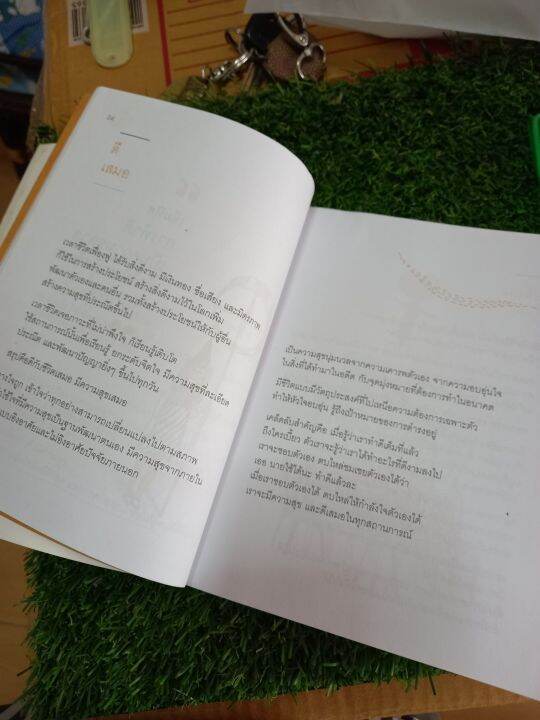 ดี
เสมอ
เวลาชีวิตเฟื่องฟู ได้รับสิ่งดีงาม มีเงินทอง ชื่อเสียง และมิตรภาพ
ก็ใช้ในการสร้างประโยชน์ สร้างสิ่งดีงามไว้ในโลกเพิ่ม
พัฒนาตัวเองและคนอื่น รวมทั้งสร้างประโยชน์ให้กับผู้อื่น
สร้างความสุขที่ประณีตขึ้นไป
เวลาชีวิตเจอภาวะที่ไม่น่าพึงใจ ก็เรียนรู้เติบโต
ใช้สถานการณ์นั้นเพื่อเรียนรู้ ยกระดับจิตใจ มีความสุขที่ละเอียด
ประณีต และพัฒนาปัญญายิ่งๆ ขึ้นไปทุกวัน
สรุปคือดีกับชีวิตเสมอ มีความสุขเสมอ
างใจถูก เข้าใจว่าทุกอย่างสามารถเปลี่ยนแปลงไปตามสภาพ
ใช้ใจที่มีความสุขเป็นฐานพัฒนาตนเอง มีความสุขจากภายใน
แบบอิงอาศัยและไม่อิงอาศัยปัจจัยภายนอก
เป็นความสุขนุ่มนวลจากความเคารพตัวเอง จากความอบอุ่นใจ
ในสิ่งที่ได้ทำมาในอดีต กับจุดมุ่งหมายที่ต้องการทำในอนาคต
มีชีวิตแบบมีวัตถุประสงค์ที่ไปเหนือความต้องการเฉพาะตัว
ทำให้หัวใจอบอุ่น รู้ถึงเป้าหมายของการดำรงอยู่
เคล็ดลับสำคัญคือ เมื่อรู้ว่าเราทำดีเต็มที่แล้ว
ถึงใครเบี้ยว ตัวเราจะรู้ว่าเราได้ทำอะไรที่ดีงามลงไป
เราจะชอบตัวเอง ตบไหล่ชมเชยตัวเองได้ว่า
เออ นายใช้ได้นะ ทำดีแล้วล่ะ
เมื่อเราชอบตัวเองได้ ตบไหล่ให้กำลังใจตัวเองได้
เราจะมีความสุข และดีเสมอในทุกสถานการณ์